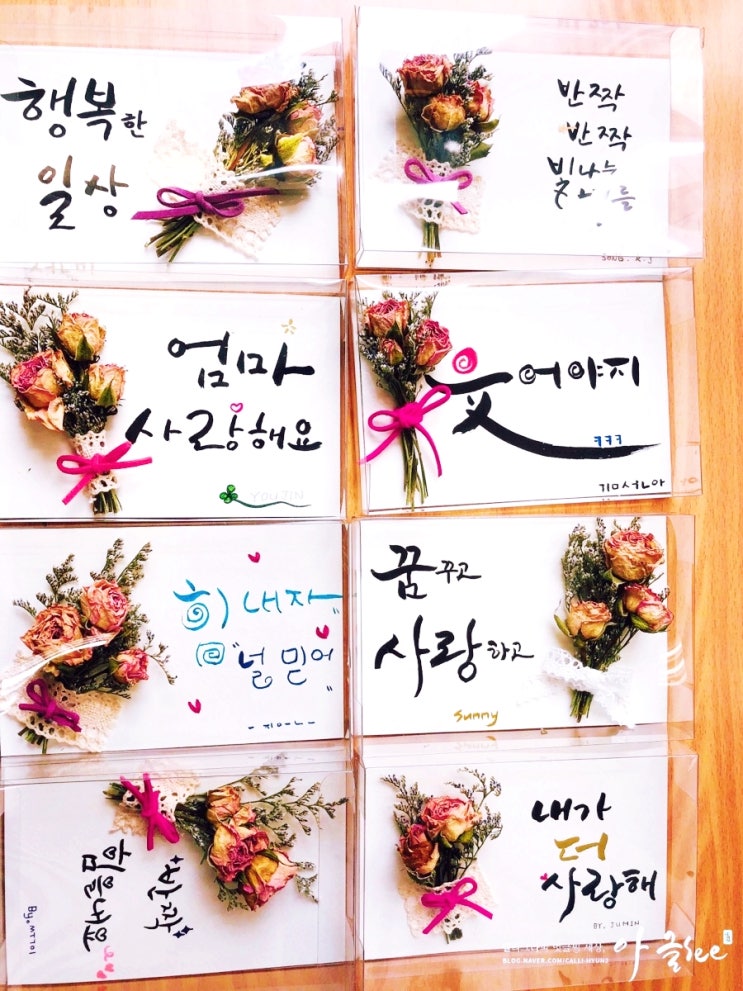 행복한
일상
반짝
반짝
빛나는
SONG. K.J
엄마
사랑해요
YOUJIN
웃어야지
ㅋㅋㅋ
김선아
힘내자
"널 믿어"
꿈꾸고
사랑하고
Sunny
힘을내요
By.
내가
더
사랑해
BY. JUMIN
아글see
BLOG.NAVER.COM/CALLI-HYUN2